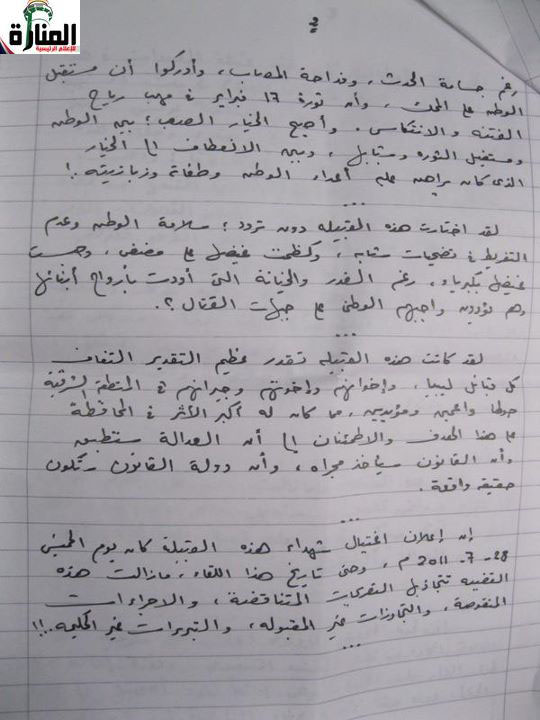 المنارة
للإعلام الرئيسية
2
رغم جسامة الحدث ، وفداحة المصاب ، وأدركوا أن مستقبل
الوطن على المحك ، وأن ثورة 17 فبراير في مهب رياح
الفتنة والانتكاس . وأصبح الخيار الصعب ؛ بين الوطن
ومستقبل الثورة ومستقبل ، وبين الانعطاف إلى الخيار
الذي كان يراهن عليه أعداء الوطن وطغاة وزبانيته .!
...
لقد اختارت هذه القبيلة دون تردد ؛ سلامة الوطن وعدم
التفريط في تضحيات شبابه ، وكظمت غيضها على مضض ،
غيض بكبرياء ، رغم الغدر والخيانة التي أودت بأرواح أبنائها
وهم يؤدون واجبهم الوطني على جبهات القتال ؟.
...
لقد كانت هذه القبيلة تقدر عظيم التقدير التفاف
كل قبائل ليبيا ، وإخوانهم وأخوتهم وجيرانهم في المنطقة الشرقية
حولها داعمين ومؤيدين ، مما كان له أكبر الأثر في المحافظة
على هذا الهدف والاطمئنان إلى أن العدالة ستطبق
وأن القانون سيأخذ مجراه ، وأن دولة القانون ستكون
حقيقة واقعة .
...
إن إعلان اغتيال شهداء هذه القبيلة كان يوم الخميس
28-7-2011 م ، وحتى تاريخ هذا اللقاء ، مازالت هذه
القضية تتجاذبها التصريحات المتناقضة ، والاجراءات
المنقوصة ، والتجاوزات غير المقبولة ، والتبريرات غير الحكيمة ..!!
...